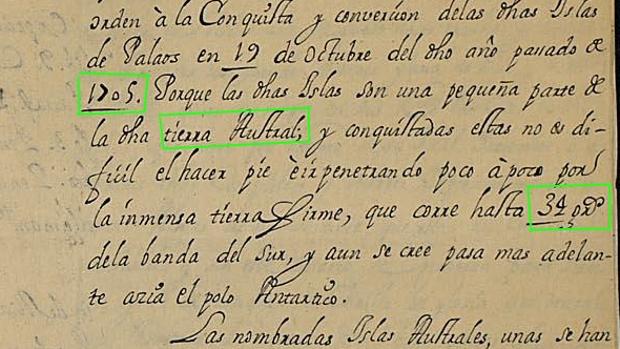 orden à la Conquista y conversion delas dhas Islas
de Palaos en 19 de Octubre del dho año passado de
1705. Porque las dhas Islas son una pequeña parte de
la dha tierra Austral, y conquistadas estas no es di-
ficil el hacer pie è ir penetrando poco à poco por
la inmensa tierra firme, que corre hasta 34
dela banda del sur, y aun se cree pasa mas adelan-
te azia el polo Antartico.
Las nombradas Islas Australes, unas se han